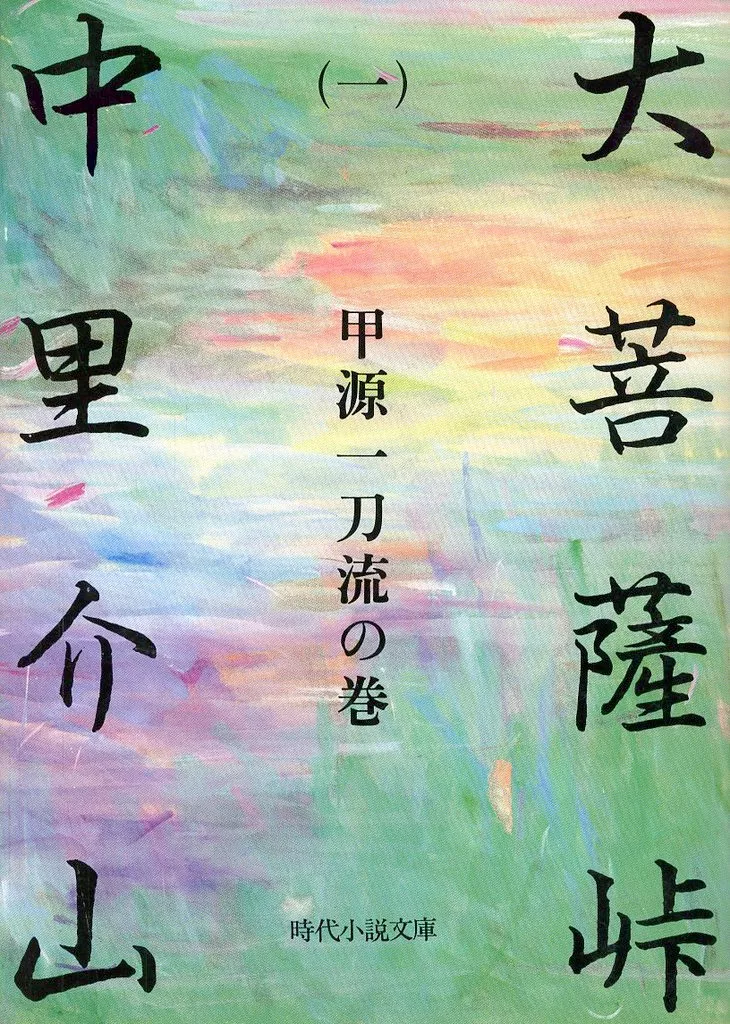 大菩薩峠
（一）
甲源一刀流の巻
中里介山
時代小説文庫